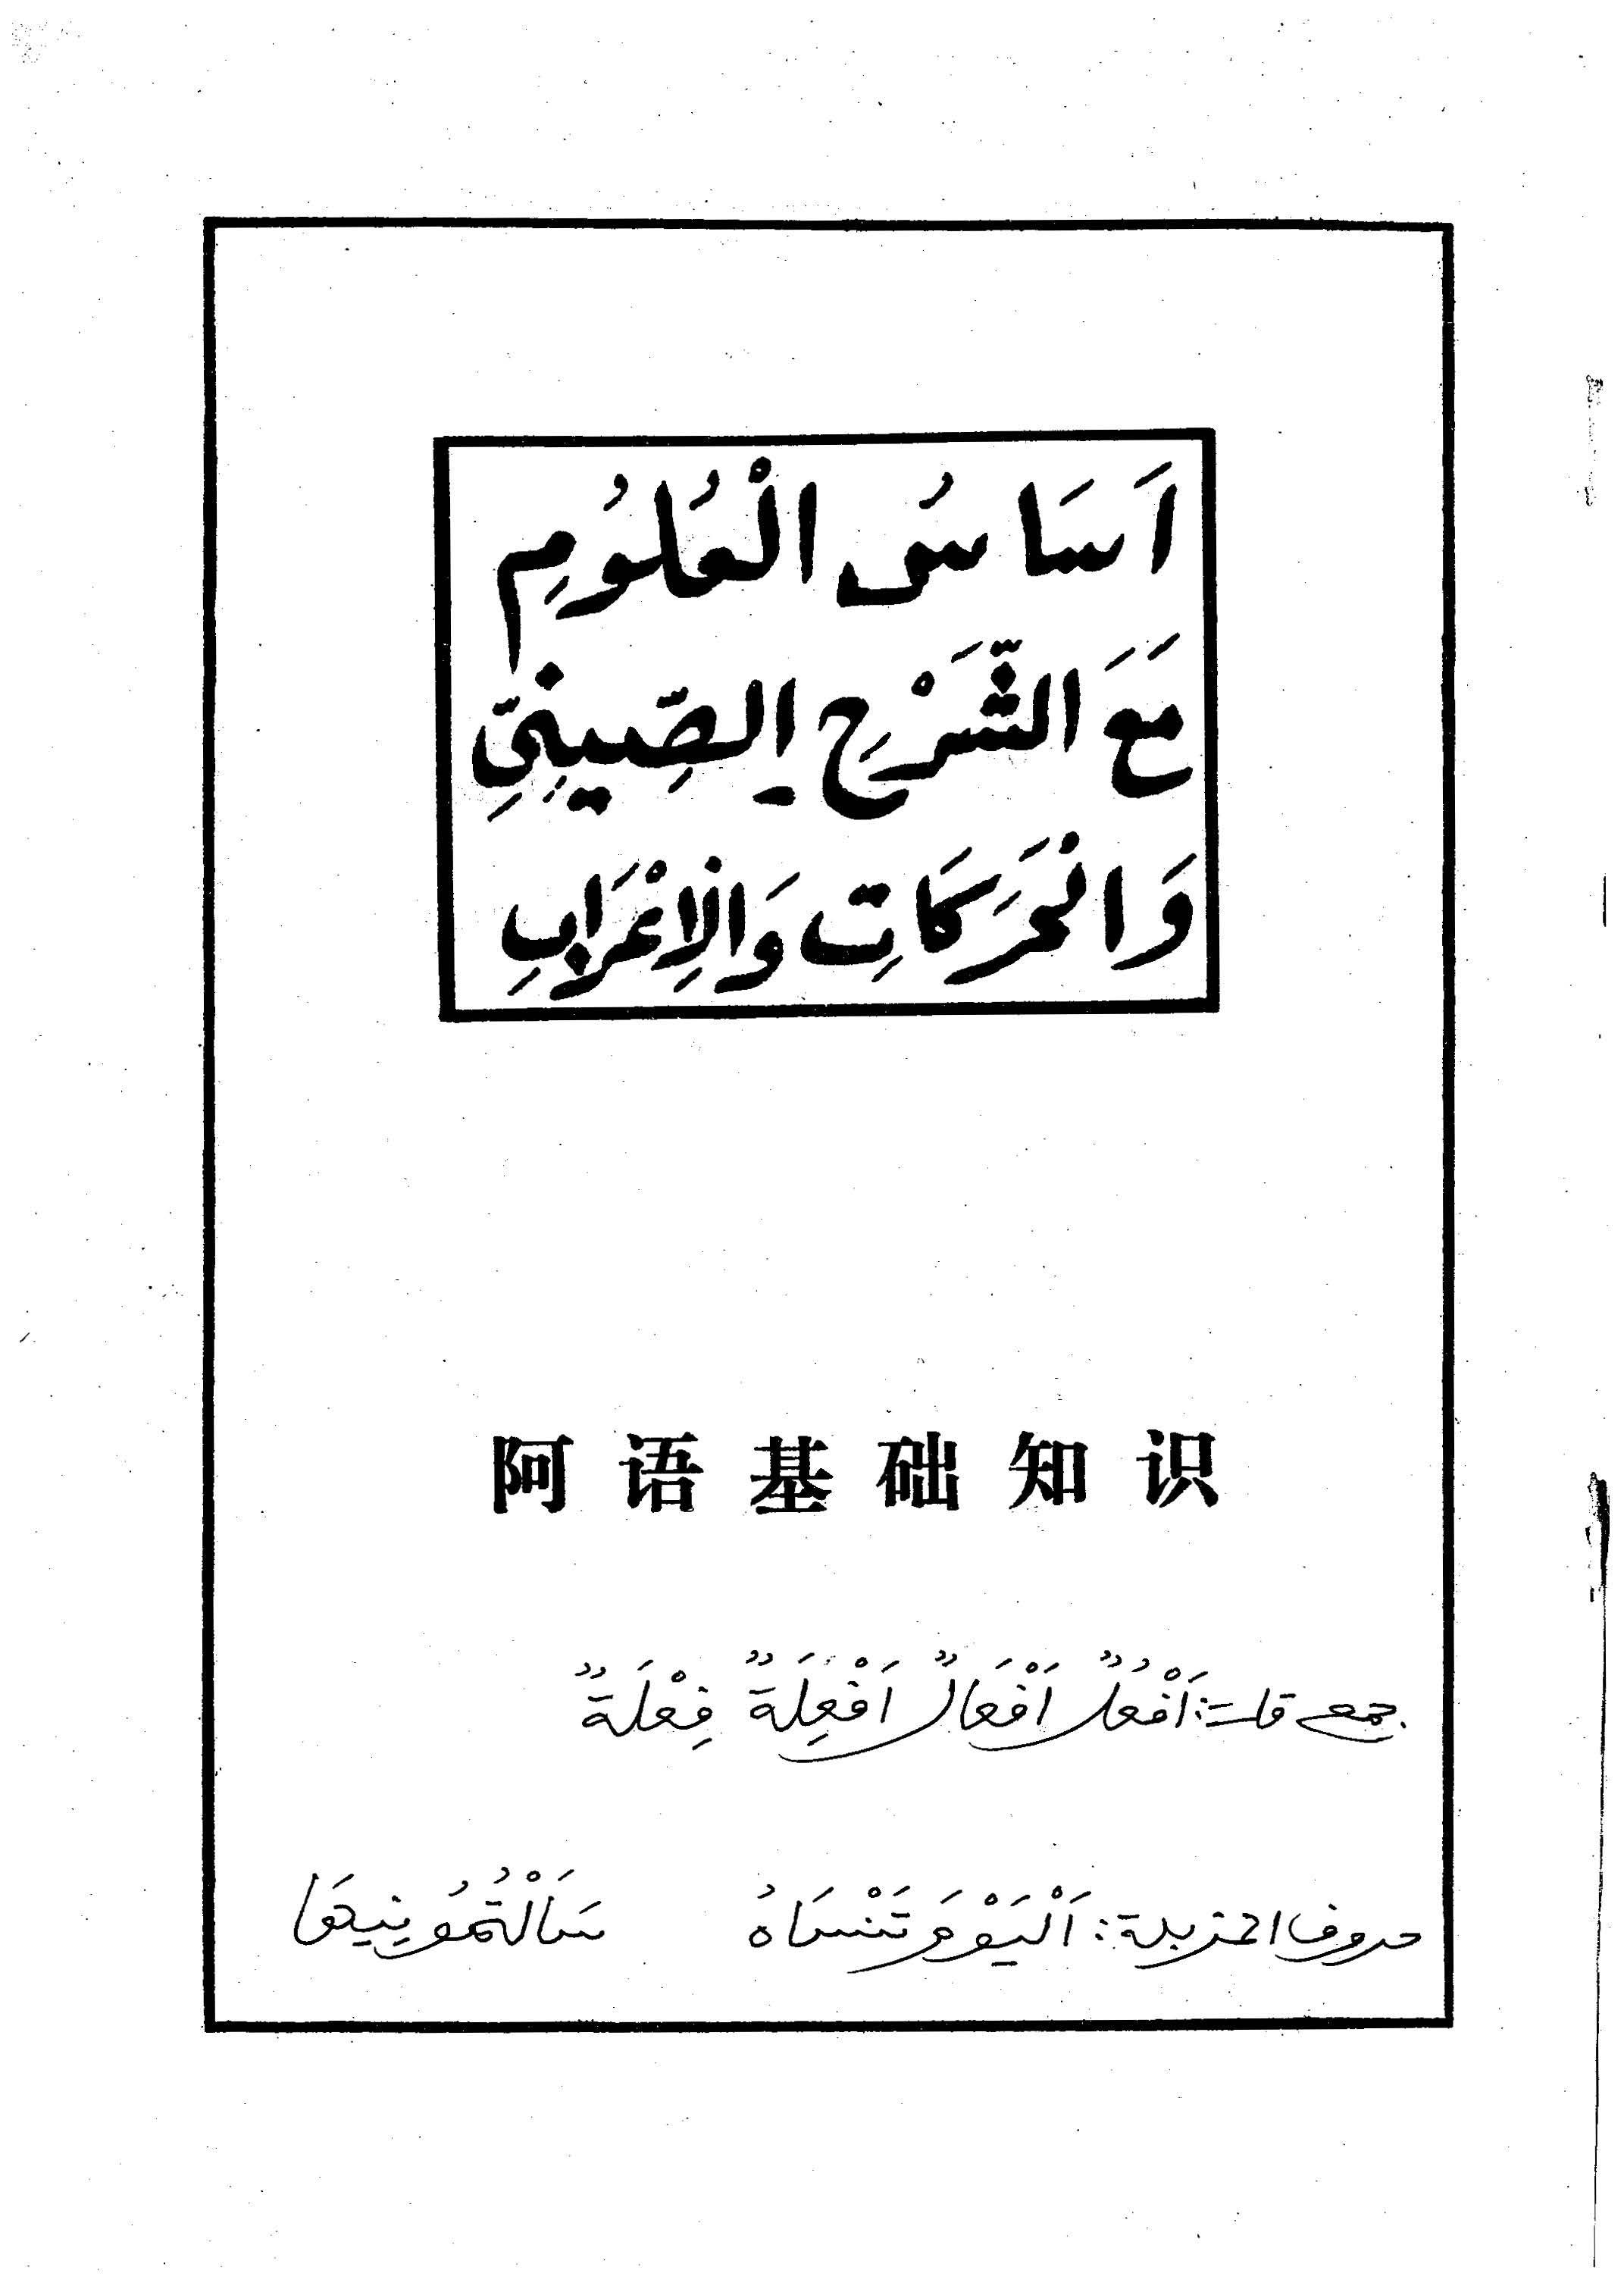 اَسَاسُ الْعُلُومِ
مَعَ الشَّرْحِ الصِّينِيِّ
وَالْحَرَكَاتِ وَالْاِعْرَابِ
阿语基础知识
جمع قلت: اَفْعُلٌ اَفْعَالٌ اَفْعِلَةٌ فِعْلَةٌ
حروف المزيدة: اَلْيَوْمَ تَنْسَاهُ سَاَلْتُمُونِيهَا